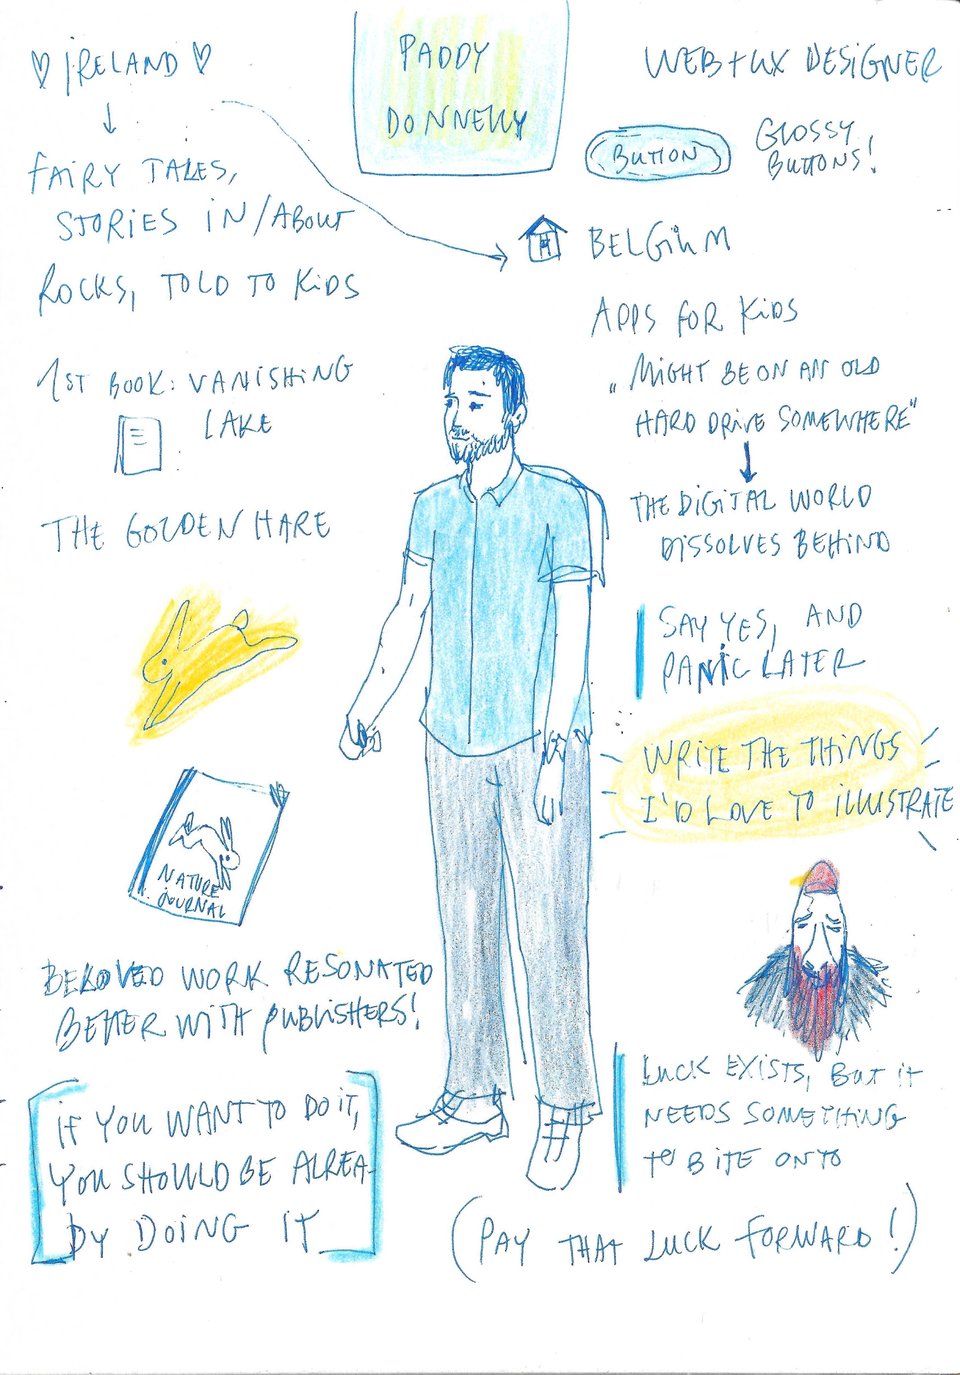 PADDY
DONNELLY
♡ IRELAND ♡
↓
FAIRY TALES,
STORIES IN/ABOUT
ROCKS, TOLD TO KIDS
1ST BOOK: VANISHING
LAKE
THE GOLDEN HARE
NATURE
JOURNAL
BELOVED WORK RESONATED
BETTER WITH PUBLISHERS!
IF YOU WANT TO DO IT,
YOU SHOULD BE ALREA-
DY DOING IT
WEB + UX DESIGNER
BUTTON
GLOSSY
BUTTONS!
BELGIUM
APPS FOR KIDS
„MIGHT BE ON AN OLD
HARD DRIVE SOMEWHERE"
↓
THE DIGITAL WORLD
DISSOLVES BEHIND
SAY YES, AND
PANIC LATER
WRITE THE THINGS
I'D LOVE TO ILLUSTRATE
LUCK EXISTS, BUT IT
NEEDS SOMETHING
TO BITE ONTO
(PAY THAT LUCK FORWARD!)